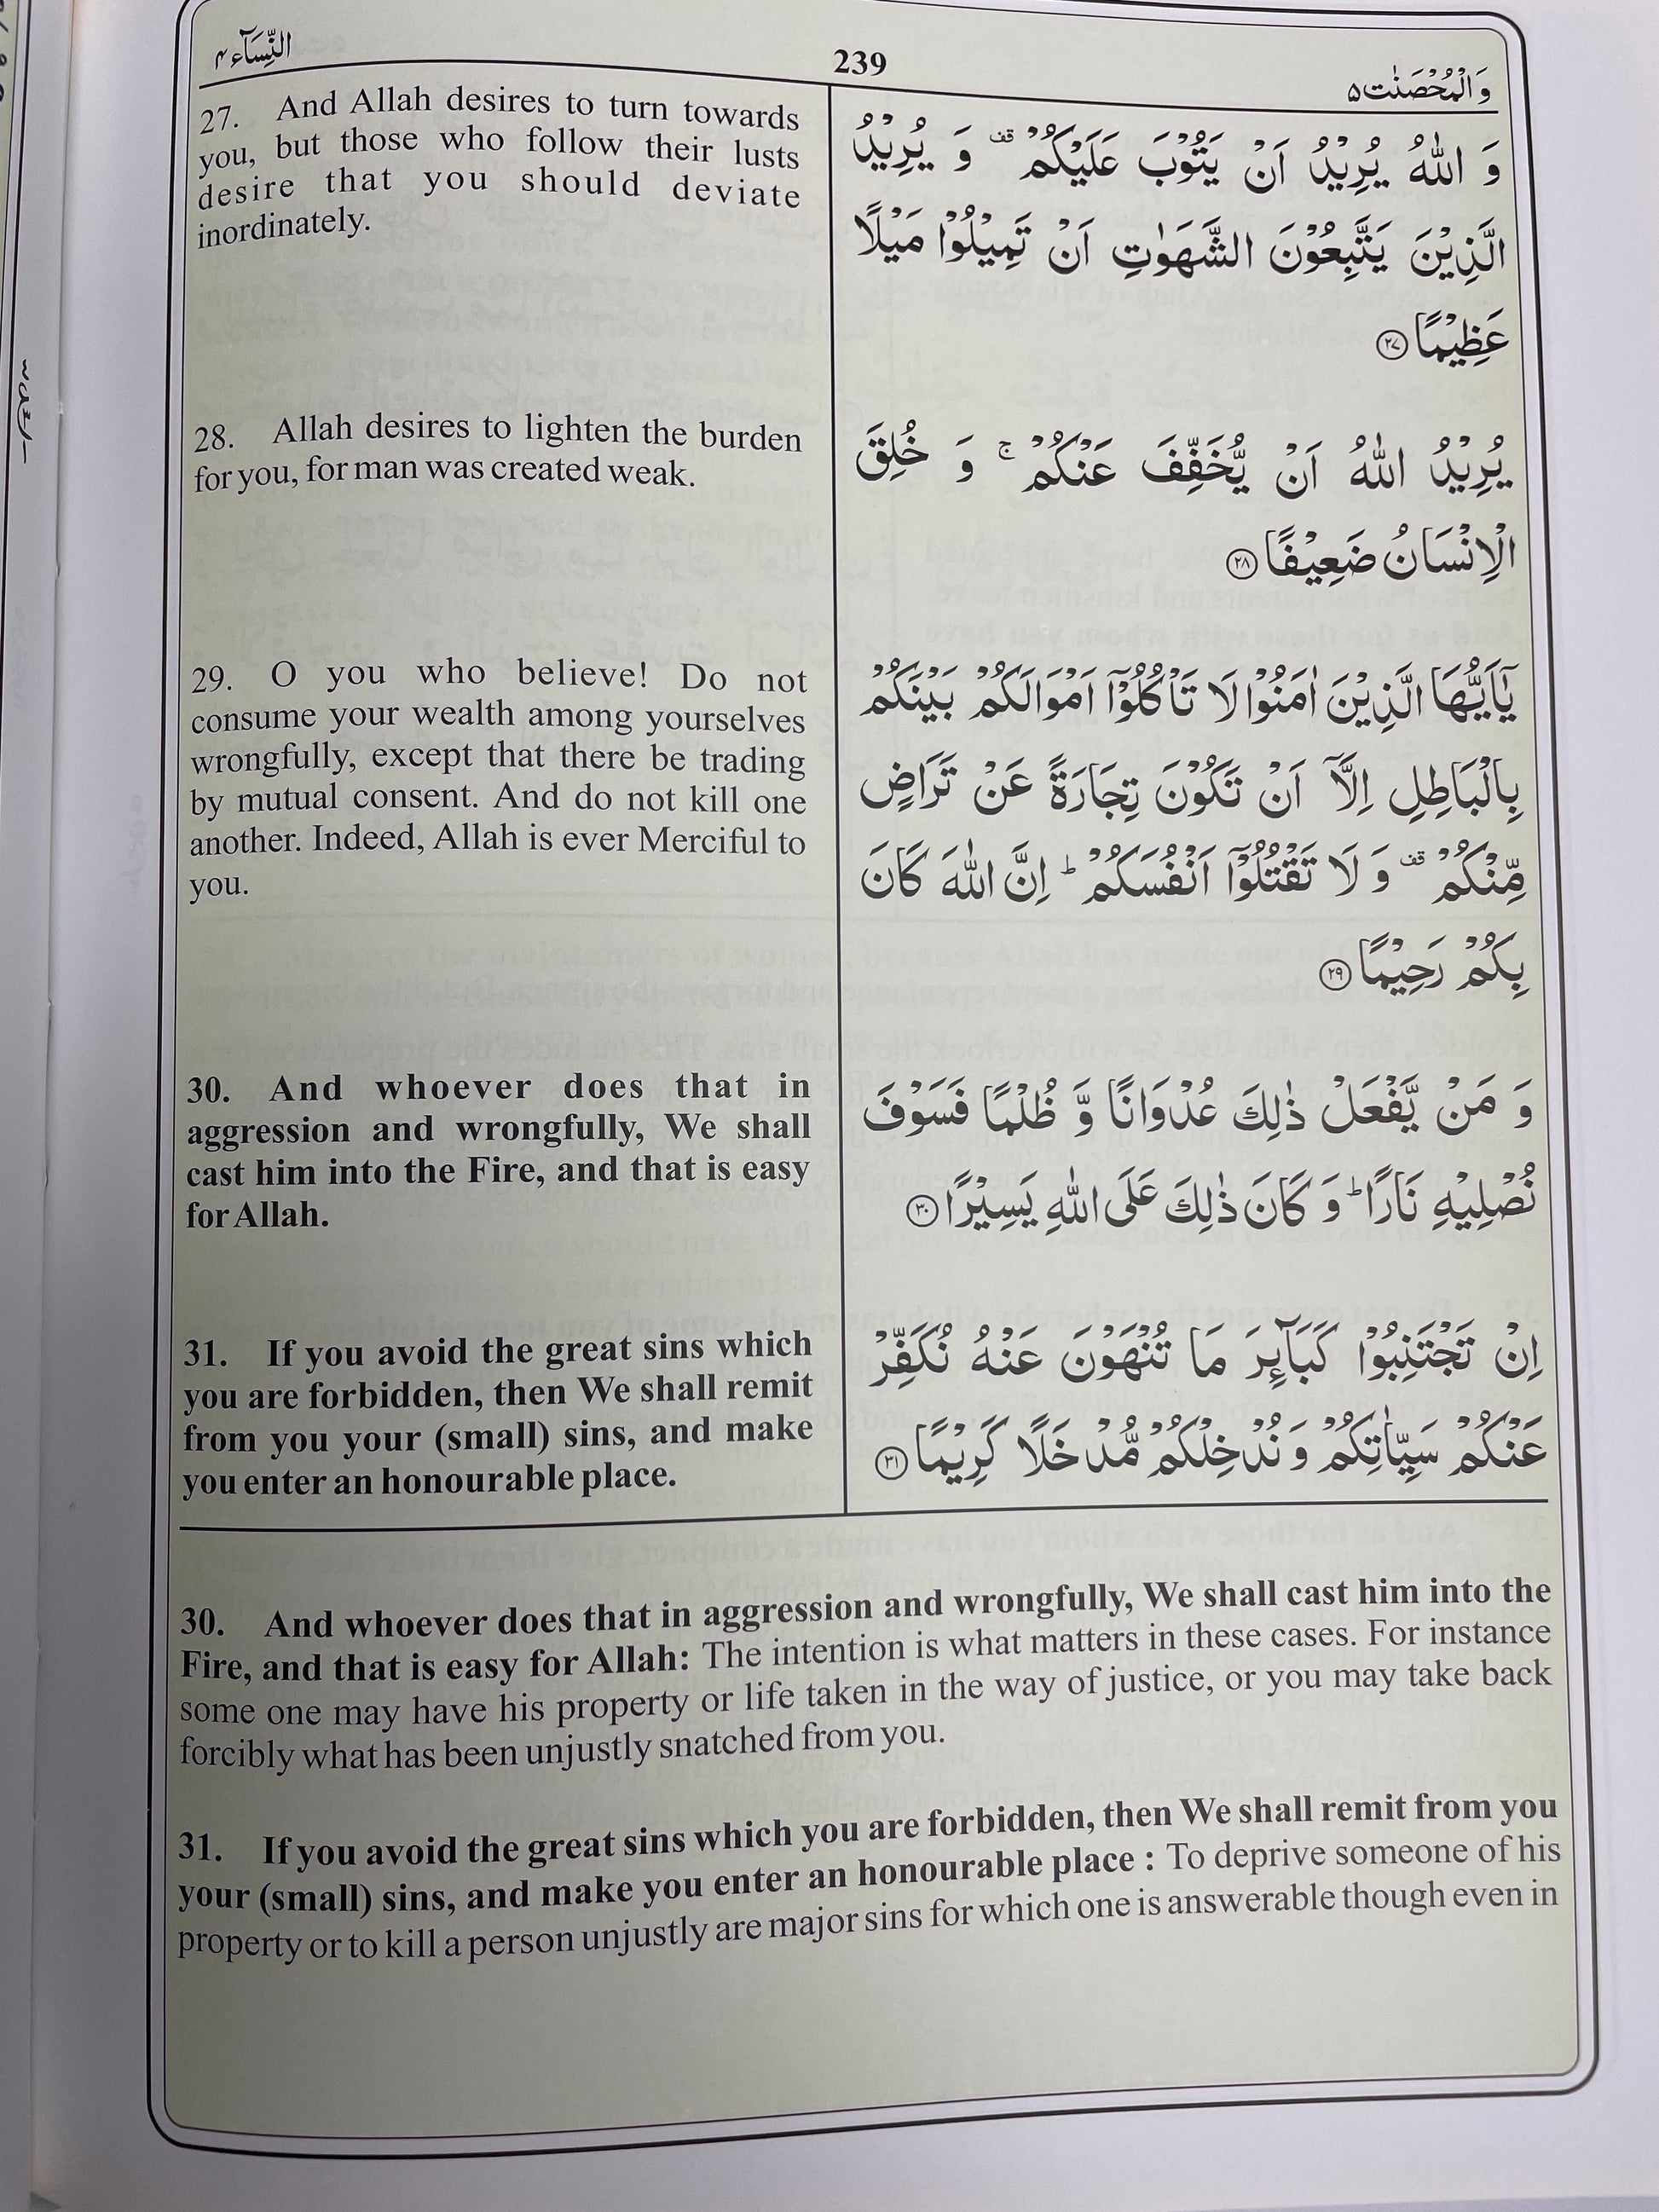 النِّسَآء ۴
239
وَ الْمُحْصَنٰت ۵
27. And Allah desires to turn towards
you, but those who follow their lusts
desire that you should deviate
inordinately.
وَ اللّٰهُ يُرِيْدُ اَنْ يَّتُوْبَ عَلَيْكُمْ ۫ وَ يُرِيْدُ
الَّذِيْنَ يَتَّبِعُوْنَ الشَّهَوٰتِ اَنْ تَمِيْلُوْا مَيْلًا
عَظِيْمًا ۲۷
28. Allah desires to lighten the burden
for you, for man was created weak.
يُرِيْدُ اللّٰهُ اَنْ يُّخَفِّفَ عَنْكُمْ ۚ وَ خُلِقَ
الْاِنْسَانُ ضَعِيْفًا ۲۸
29. O you who believe! Do not
consume your wealth among yourselves
wrongfully, except that there be trading
by mutual consent. And do not kill one
another. Indeed, Allah is ever Merciful to
you.
يٰۤاَيُّهَا الَّذِيْنَ اٰمَنُوْا لَا تَاْكُلُوْۤا اَمْوَالَكُمْ بَيْنَكُمْ
بِالْبَاطِلِ اِلَّاۤ اَنْ تَكُوْنَ تِجَارَةً عَنْ تَرَاضٍ
مِّنْكُمْ ۫ وَ لَا تَقْتُلُوْۤا اَنْفُسَكُمْ ؕ اِنَّ اللّٰهَ كَانَ
بِكُمْ رَحِيْمًا ۲۹
30. And whoever does that in
aggression and wrongfully, We shall
cast him into the Fire, and that is easy
for Allah.
وَ مَنْ يَّفْعَلْ ذٰلِكَ عُدْوَانًا وَّ ظُلْمًا فَسَوْفَ
نُصْلِيْهِ نَارًا ؕ وَ كَانَ ذٰلِكَ عَلَى اللّٰهِ يَسِيْرًا ۳۰
31. If you avoid the great sins which
you are forbidden, then We shall remit
from you your (small) sins, and make
you enter an honourable place.
اِنْ تَجْتَنِبُوْا كَبَآىِٕرَ مَا تُنْهَوْنَ عَنْهُ نُكَفِّرْ
عَنْكُمْ سَيِّاٰتِكُمْ وَ نُدْخِلْكُمْ مُّدْخَلًا كَرِيْمًا ۳۱
30. And whoever does that in aggression and wrongfully, We shall cast him into the
Fire, and that is easy for Allah: The intention is what matters in these cases. For instance
some one may have his property or life taken in the way of justice, or you may take back
forcibly what has been unjustly snatched from you.
31. If you avoid the great sins which you are forbidden, then We shall remit from you
your (small) sins, and make you enter an honourable place : To deprive someone of his
property or to kill a person unjustly are major sins for which one is answerable though even in